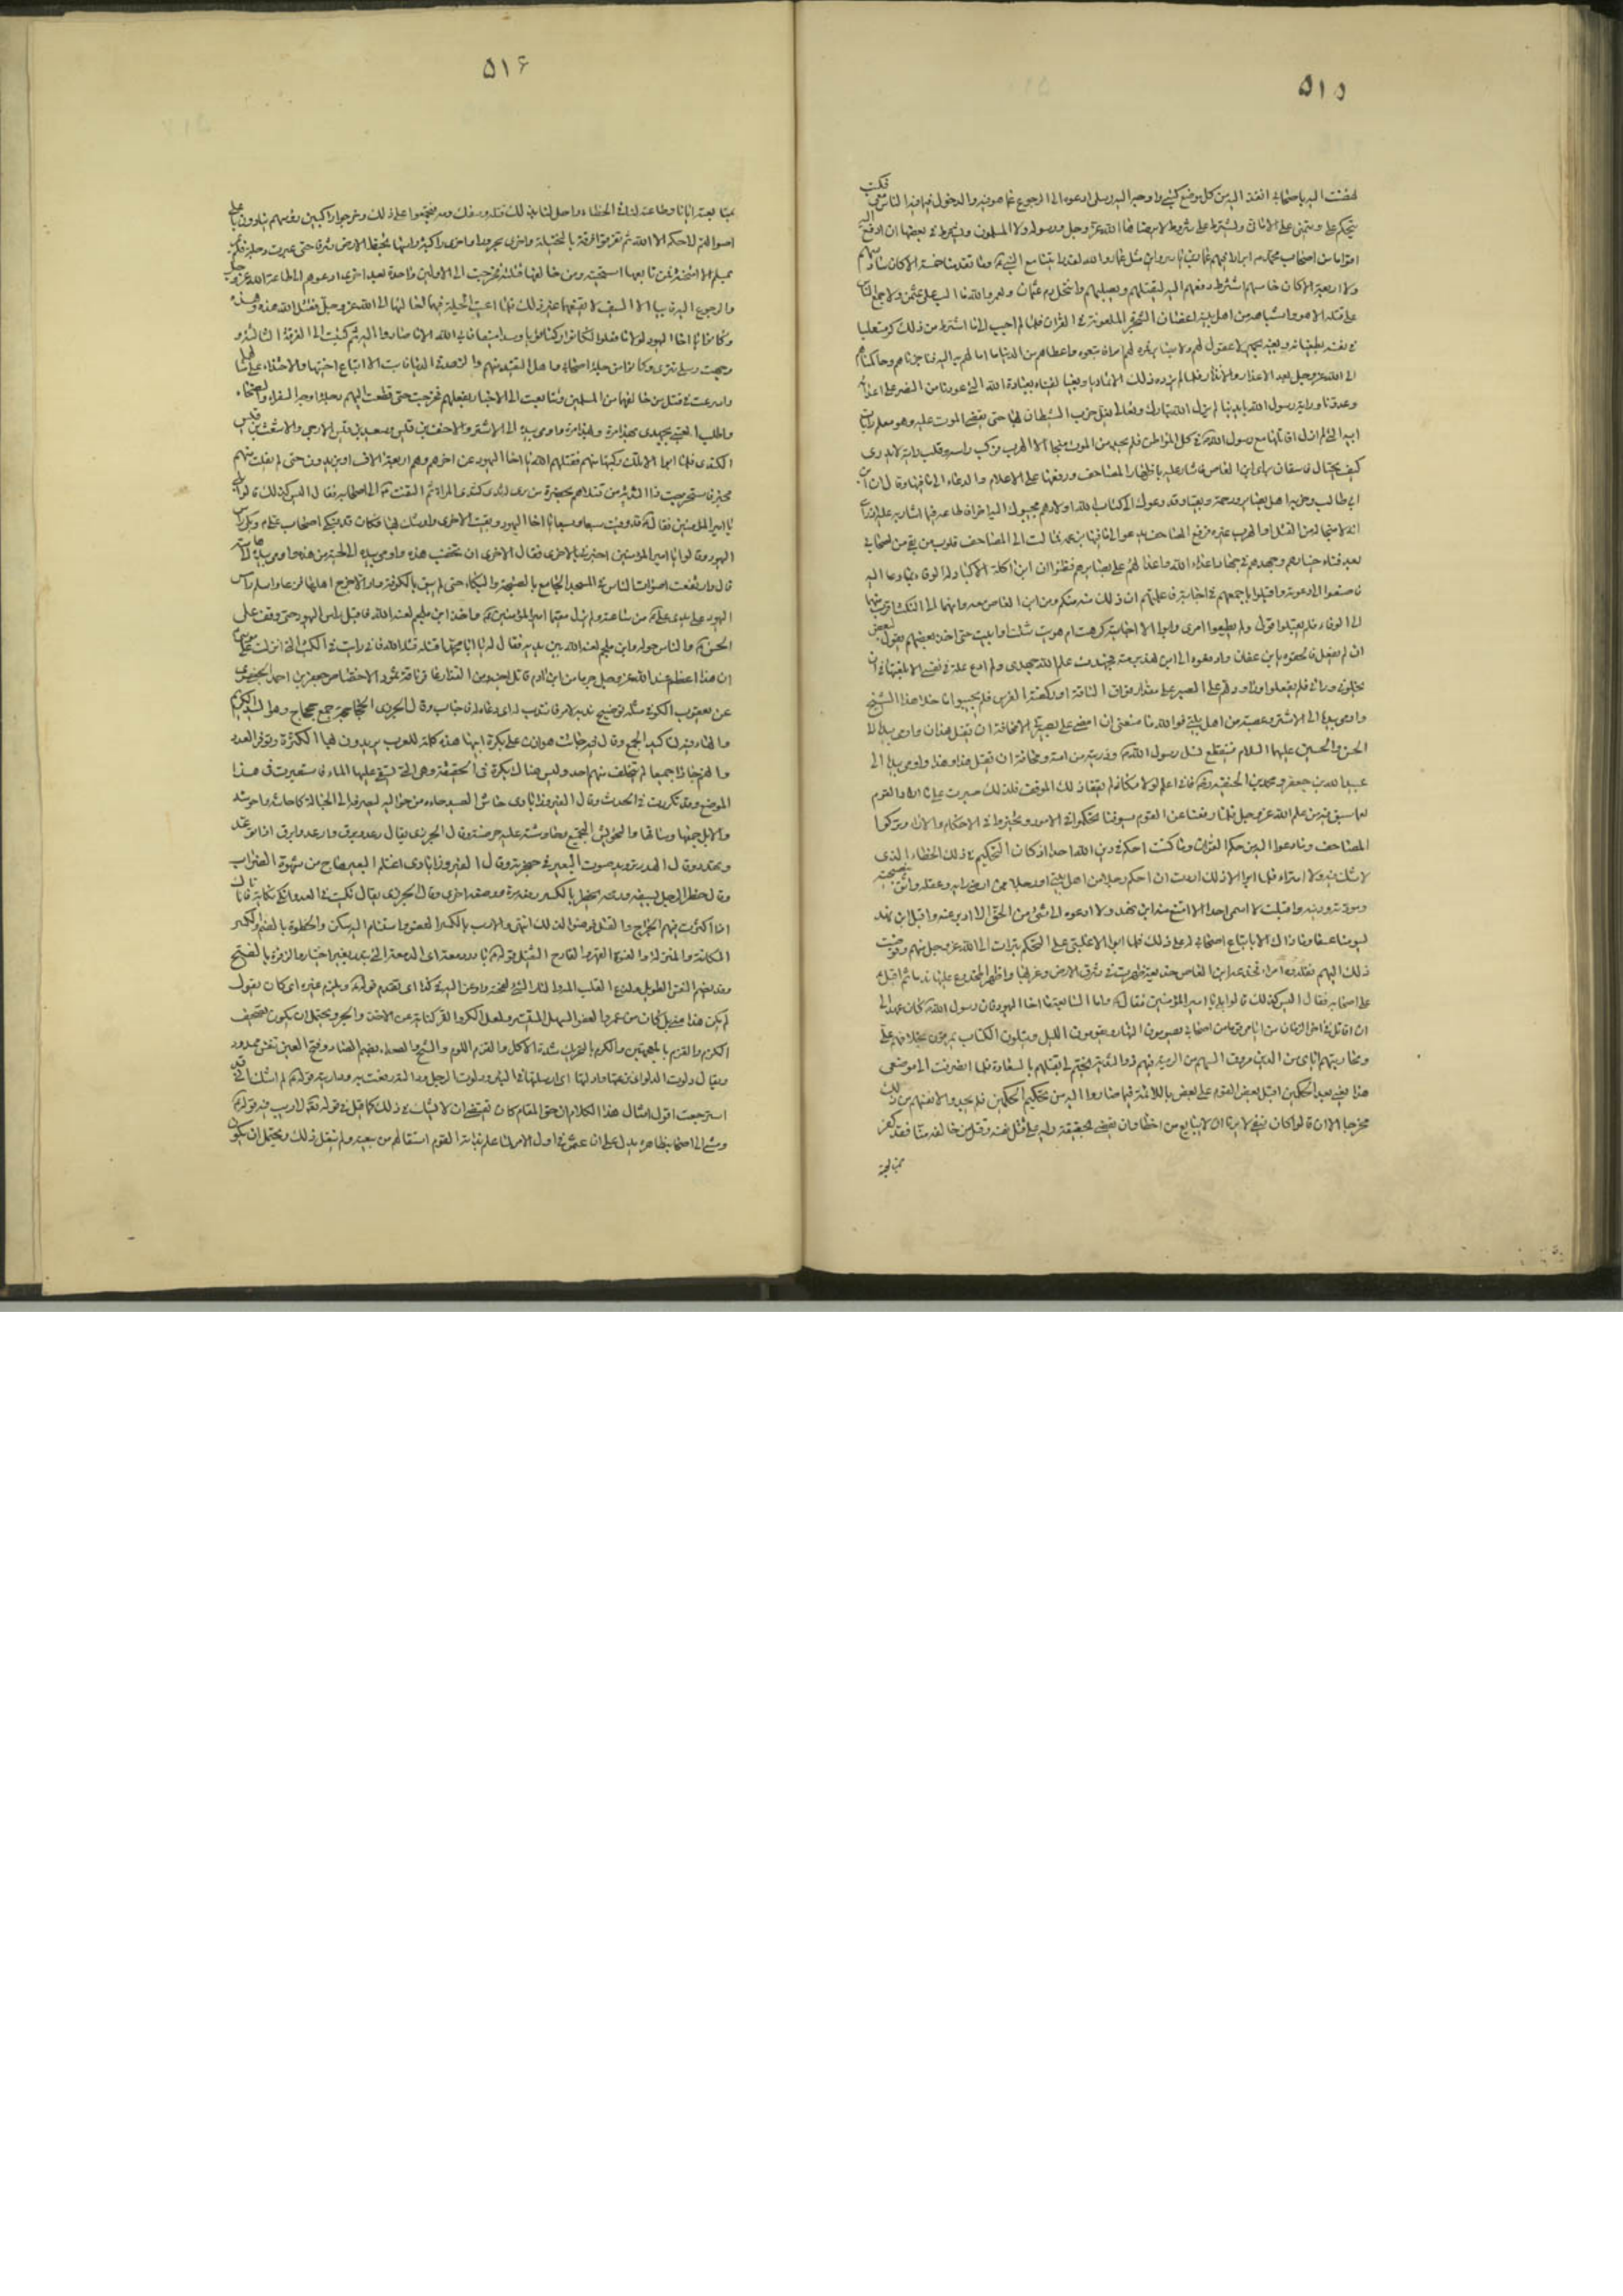 ٥١٥
نهضت اليه باصحابي انفذ اليه من كل موضع كتبي واوجه اليه رسلي ادعوه الى الرجوع عما هو فيه والدخول فيما فيه الناس معي فكتب
يتحكم علي ويتمنى علي الاماني ويشترط علي شروطا لا يرضاها الله عز وجل ورسوله ولا المسلمون ويشترط في بعضها ان ادفع اليه
اقواما من اصحاب محمد ابرارا فيهم عمار بن ياسر واين مثل عمار والله لقد رايتنا مع النبي وما تقدمنا خمسة الا كان سادسهم
ولا اربعة الا كان خامسهم اشترط دفعهم اليه ليقتلهم ويصلبهم وانتحل دم عثمان ولعمر والله ما الب على عثمن ولا جمع الناس
على قتله الا هو واشباهه من اهل بيته اغصان الشجرة الملعونة في القرآن فلما لم اجب الى ما اشترط من ذلك كر مستعليا
في نفسه بطغيانه وبغيه بحمير لا عقول لهم ولا بصاير فموه لهم امرا فاتبعوه واعطاهم من الدنيا ما امالهم به اليه فناجزناهم وحاكمناهم
الى الله عز وجل بعد الاعذار والانذار فلما لم يزده ذلك الا تماديا وبغيا لقيناه بعادة الله التي عودنا من النصر على اعدائه
وعدونا وراية رسول الله بايدينا لم يزل الله تبارك وتعالى يفل حزب الشيطان بها حتى يقضى الموت عليه وهو معلم رايات
ابيه التي لم ازل اقاتلها مع رسول الله في كل المواطن فلم يجد من الموت منجا الا الهرب فركب فرسه وقلب رايته لا يدري
كيف يحتال فاستعان براي ابن العاص فاشار عليه باظهار المصاحف ورفعها على الاعلام والدعاء الى ما فيها وقال ان ابن
ابي طالب وحزبه اهل بصاير ورحمة وبقيا وقد دعوك الى كتاب الله اولا وهم مجيبوك اليه اخرا فاطاعه فيما اشار به عليه اذ راى
انه لا منجا له من القتل او الهرب غيره فرفع المصاحف يدعو الى ما فيها بزعمه فمالت الى المصاحف قلوب من بقي من اصحابي
بعد فناء خيارهم وجهدهم في جهاد اعداء الله واعدائهم على بصايرهم فظنوا ان ابن آكلة الاكباد له الوفاء بما دعا اليه
فاصغوا الى دعوته واقبلوا باجمعهم في اجابته فاعلمتهم ان ذلك منه مكر ومن ابن العاص معه وانهما الى النكث اقرب منهما
الى الوفاء فلم يقبلوا قولي ولم يطيعوا امري وابوا الا اجابته كرهت ام هويت شئت او ابيت حتى اخذ بعضهم يقول لبعض
ان لم يفعل فالحقوه بابن عفان وادفعوه الى ابن هند برمته فجهدت علم الله جهدي ولم ادع علة في نفسي الا بلغتها في ان
يخلوني ورائي فلم يفعلوا وراودتهم على الصبر على مقدار فواق الناقة او ركضة الفرس فلم يجيبوا ما خلا هذا الشيخ
واومى بيده الى الاشتر وعصبة من اهل بيتي فوالله ما منعني ان امضي على بصيرتي الا مخافة ان يقتل هذان واومى بيده الى
الحسن والحسين عليهما السلام فينقطع نسل رسول الله وذريته من امته ومخافة ان يقتل هذا وهذا واومى بيده الى
عبد الله بن جعفر ومحمد بن الحنفية فاني اعلم لولا مكاني لم يقفا ذلك الموقف فلذلك صبرت على ما اراد القوم
مع ما سبق فيه من علم الله عز وجل فلما رفعنا عن القوم سيوفنا تحكموا في الامور وتخيروا في الاحكام والآراء وتركوا
المصاحف وما دعوا اليه من حكم القران وما كنت احكم في دين الله احدا اذ كان التحكيم في ذلك الخطاء الذي
لا شك فيه ولا امتراء فلما ابوا الا ذلك اردت ان احكم رجلا من اهل بيتي او رجلا ممن ارضى رايه وعقله واثق بنصيحته
ومودته ودينه واقبلت لا اسمي احدا الا امتنع منه ابن هند ولا ادعوه الى شيء من الحق الا ادبر عنه واقبل ابن هند
يسومنا عسفا وما ذاك الا باتباع اصحابي له على ذلك فلما ابوا الا غلبتي على التحكم تبرات الى الله عز وجل منهم وفوضت
ذلك اليهم فقلدوه امرءا فخدعه ابن العاص خديعة ظهرت في شرق الارض وغربها واظهر المخدوع عليها ندما ثم اقبل
على اصحابه فقال اليس كذلك قالوا بلى يا امير المؤمنين فقال واما السابعة يا اخا اليهود فان رسول الله كان عهد الي
ان اقاتل في اخر الزمان من ايامي قوما من اصحابي يصومون النهار ويقومون الليل ويتلون الكتاب يمرقون بخلافهم علي
ومحاربتهم اياي من الدين مروق السهم من الرمية فيهم ذو الثدية يختم لي بقتلهم بالسعادة فلما انصرفت الى موضعي
هذا يعني بعد الحكمين اقبل بعض القوم على بعض باللائمة فيما صاروا اليه من تحكيم الحكمين فلم يجدوا لانفسهم من ذلك
مخرجا الا ان قالوا كان ينبغي لاميرنا ان لا يبايع من اخطا وان يقضي بحقيقة رايه على قتل نفسه وقتل من خالفه منا فقد كفر
بمتابعته
٥١۶
بمتابعته ايانا وطاعته لنا في الخطاء واحل لنا بذلك قتله وسفك دمه فتجمعوا على ذلك وخرجوا راكبين رؤسهم ينادون باعلى
اصواتهم لا حكم الا لله ثم تفرقوا فرقة بالنخيلة واخرى بحروراء واخرى راكبة راسها تخبط الارض شرقا حتى عبرت دجلة فلم تمر
بمسلم الا امتحنته فمن تابعها استحيته ومن خالفها قتلته فخرجت الى الاوليين واحدة بعد اخرى ادعوهم الى طاعة الله عز وجل
والرجوع اليه فابيا الا السيف لا يقنعهما غير ذلك فلما اعيت الحيلة فيهما حاكمتهما الى الله عز وجل فقتل الله هذه وهذه
وكانوا يا اخا اليهود لولا ما فعلوا لكانوا ركنا قويا وسدا منيعا فابى الله الا ما صاروا اليه ثم كتبت الى الفرقة الثالثة و
وجهت رسلي تترى وكانوا من جلة اصحابي واهل التعبد منهم والزهد في الدنيا فابت الا اتباع اختيها والاحتذاء على مثالهما
واسرعت في قتل من خالفها من المسلمين وتتابعت الي الاخبار بفعلهم فخرجت حتى قطعت اليهم دجلة اوجه السفراء والنصحاء
واطلب العتبى بجهدي بهذا مرة وبهذا مرة واومى بيده الى الاشتر والاحنف بن قيس وسعيد بن قيس الارحبي والاشعث بن قيس
الكندي فلما ابوا الا تلك ركبتها منهم فقتلهم الله يا اخا اليهود عن اخرهم وهم اربعة الاف او يزيدون حتى لم يفلت منهم
مخبر فاستخرجت ذا الثدية من قتلاهم بحضرة من يرى له ثدي كثدي المراة ثم التفت الى اصحابه فقال اليس كذلك قالوا بلى
يا امير المؤمنين فقال قد وفيت سبعا وسبعا يا اخا اليهود وبقيت الاخرى واوشك بها فكان قد فبكى اصحاب علي وبكى راس
اليهود وقالوا يا امير المؤمنين اخبرنا بالاخرى فقال الاخرى ان تخضب هذه واومى بيده الى لحيته من هذه واومى بيده الى هامته
قال وارتفعت اصوات الناس في المسجد الجامع بالضجة والبكاء حتى لم يبق بالكوفة دار الا خرج اهلها فزعا واسلم راس
اليهود على يدي علي من ساعته ولم يزل مقيما حتى قتل امير المؤمنين واخذ ابن ملجم لعنه الله فاقبل راس اليهود حتى وقف على
الحسن والناس حوله وابن ملجم لعنه الله بين يديه فقال له يا ابا محمد اقتله قتله الله فاني رايت في الكتب التي انزلت على موسى
ان هذا اعظم عند الله عز وجل جرما من ابن ادم قاتل اخيه ومن القدار عاقر ناقة ثمود الاختصاص جعفر بن احمد
عن يعقوب الكوفي مثله توضيح ندبه لامر فانتدب له اي دعاه له فاجاب وقال الجزري الجحاجحة جمع جحجاح وهو السيد الكريم
والهاء فيه لتاكيد الجمع وقال فيه جاءت هوازن على بكرة ابيها هذه كلمة للعرب يريدون بها الكثرة وتوفر العدد
وانهم جاؤا جميعا لم يتخلف منهم احد وليس هناك بكرة في الحقيقة وهي التي يستقى عليها الماء فاستعيرت في هذا
الموضع وقد تكررت في الحديث وقال الفيروزآبادي حاش الصيد جاءه من حواليه ليصرفه الى الحبالة كاحاشه واحوشه
والابل جمعها وساقها والتحويش التجميع وحاوشته عليه حرضته وقال الجزري يقال رعد وبرق وارعد وابرق اذا توعد
وتهدد وقال الهدر ترديد صوت البعير في حنجرته وقال الفيروزآبادي اغتلم البعير هاج من شهوة الضراب
وقال خطر الرجل بسيفه ورمحه يخطر بالكسر رفعه مرة ووضعه اخرى وقال الجزري يقال نكيت في العدو انكي نكاية فانا ناك
اذا اكثرت فيهم الجراح والقتل فوهنوا لذلك انتهى والارب بالكسر العضو واستنام اليه سكن والحظوة بالضم والكسر
المكانة والمنزلة والفورة القهر والفادح الثقيل قوله يا ودمعتر اي المعتر الذي يرد بغير اختيار والزفرة بالفتح
وقد يضم النفس الطويل ولذع القلب المه ولذع النار الشيء لفحته وازعن اليه كذا اي تقدم قوله ويلزم غيره اي كان يقول
لم يكن هذا مني بل كان من عمر والغض اليسير السهل المقتبر ولعل الكر والفر كناية عن الاخذ والجر ويحتمل ان يكون تصحيف
الكزم والقزم بالمعجمتين والكزم بالتحريك شدة الاكل والقزم اللؤم والشح والصعداء بضم الصاد وفتح العين تنفس ممدود
ويقال دلوت الدلو اي نزعتها وادليتها اي ارسلتها في البئر ودلوت الرجل وداليته رفقت به وداريته قوله لم اشك اني قد
استرجعت اقول امثال هذا الكلام ان حق المقام كان يقتضي ان لا يشك في ذلك كما قيل في قوله تعالى لا ريب فيه قوله
ومشى الى اصحابه ظاهره يدل على ان عثمن في اول الامر لما علم ندامة القوم استقالهم من بيعته ولم ينقل ذلك ويحتمل ان يكون